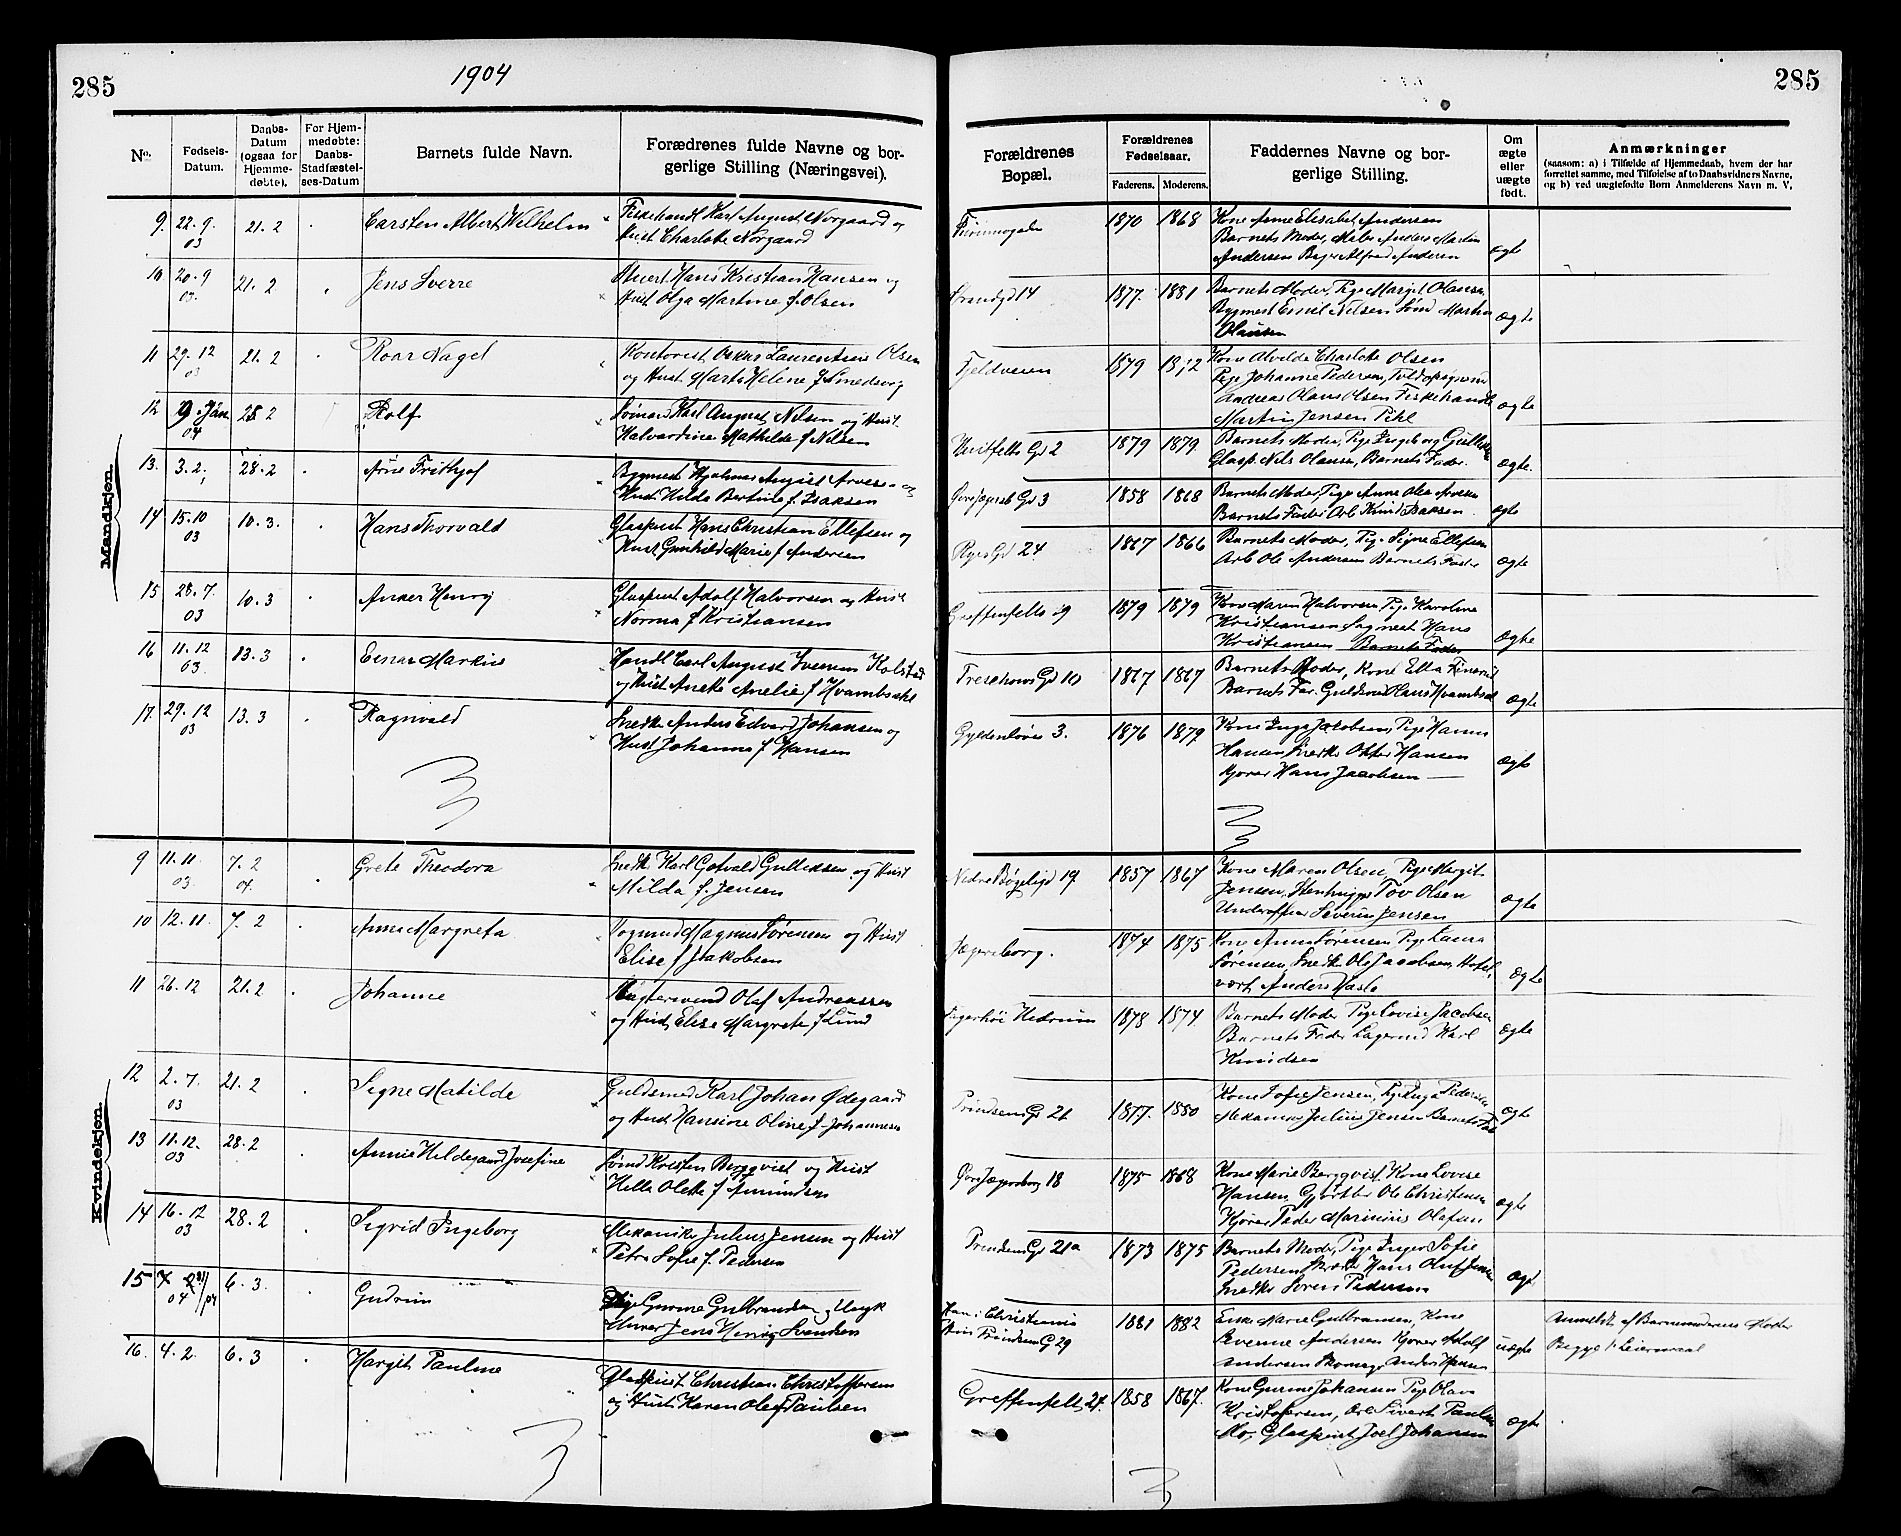 285
1904
285
No.
Fødsels-
Datum.
Daabs-
Datum
(ogsaa for
Hjemme-
døbte).
For Hjem-
medøbte:
Daabs-
Stadfæstel-
ses-Datum
Barnets fulde Navn.
Forældrenes fulde Navne og bor-
gerlige Stilling (Næringsvei).
Forældrenes
Bopæl.
Forældrenes
Fødselsaar.
Faderens. Moderens.
Faddernes Navne og bor-
gerlige Stilling.
Om
ægte
eller
uægte
født.
Anmærkninger
(saasom: a) i Tilfælde af Hjemmedaab, hvem der har
forrettet samme, med Tilføielse af to Daabsvidners Navne,
og b) ved uægtefødte Børn Anmelderens Navn m. V.
Mandkjøn.
9. 22.9. 03 21.2 Carsten Albert Wilhelm
Karl August Norgaard og
Hust Charlotte Norgaard
1870 1868 Kone Anne Elisabet Andersen
Barnets Moder, Maler Anders Martin
Andersen Alfred Andersen
ægte
10 20.9 03. 21.2 Jens Sverre
Hans Kristian Hansen og
Hust Olga Martine f. Olsen
Strandgd 14 1877. 1881 Barnets Moder, Pige Margit Olausen
Bygmest Emil Nelsen Sømd Martin
Olausen
ægte
11 29.12 03 21.2 Roar Nagel
Kontorist Oskar Laurentius Olsen
og Hust Marta Helene f Smedsvig
Fjeldveien 1879 Kone Alvilde Charlotte Olsen
Pige Johanne Pedersen,
Andreas Olaus Olsen Fiskehandl
Martin Jensen Pihl
ægte
12 9. Jan 04 28.2 Rolf
Sømand Karl August Nilsen og Hust.
Halvardine Mathilde f Nelsen
Huitfelts Gd 2 1879 1879 Barnets Moder, Pige Ingeborg
Glasp. Nils Olausen, Barnets Fader.
ægte.
13. 3.2. 28.2 Arne Frithjof
Bygmest Hjalmar August og
Hust Hilda Bertine f. Isaksen
Gd 3 1858 1868 Barnets Moder, Pige Anne Olea
Barnets Fader Arb Knud Isaksen.
ægte
14 15.10 03 10.3. Hans Thorvald
Glaspust Hans Christian Ellefsen og
Hust Gunhild Marie f Andersen
Gd 24 1867 1866 Barnets Moder, Pige Signe Ellefsen
Arb Ole Andersen Barnets Fader
ægte
15 28.7. 03 10.3 Anker Henry
Glaspust Adolf Halvorsen og Hust
Norma f Kristiansen
1879 1879 Kone Maren Halvorsen, Pige Karoline
Kristiansen Hans
Kristiansen Barnets Fader
ægte
16 11.12 03. 13.3 Einar Markus
Handl Carl August Kolstad
og Hust Anette Amelie f Hvambsahl
Treschows Gd 10 1867 1867 Barnets Moder, Kone Ella
Barnets Far. Guldsmed Hans Hvambsal
ægte
17. 29.12 03 13.3 Ragnvald
Snedk Anders Edvard Johansen og
Hust Johanna f Hansen
Gyldenløves 3. 1876 1879 Kone Inga Jacobsen, Pige Hanna
Hansen, Snedk Otter Hansen
Kjører Hans Jacobsen
ægte
3
3
Kvindekjøn.
9 11.11. 03. 7.2 04. Grete Theodora
Snedk Karl Gotvald Gulliksen og Hust
Milda f. Jensen
Nedre Bøgeligd 19 1857 1867 Kone Maren Olsen, Pige Margit
Jensen, Stenhugger Tov Olsen
Underofficer Severin Jensen
ægte
10 12.11. 7.2 Anna Margreta
Magnus Sørensen og Hust
Elise f Jakobsen
Jægersborg. 1874 1875 Kone Anna Sørensen Pige Laura
Sørensen, Snedk Ole Jacobsen, Hotel-
vært Anders Hasle
ægte
11 26.12 21.2 Johanne
Olaf Andreassen
og Hust, Elise Margrete f Lund
Hedrum 1878 1874 Barnets Moder Pige Lovise Jacobsen
Barnets Fader Karl
Knudsen
ægte
12 2.7. 03 21.2 Signe Matilde
Guldsmed Karl Johan Ødegaard
og Hust Hansine Oline f. Johannesen
Prindsens Gd 21 1877. 1880 Kone Sofie Jensen, Pige Inga Pedersen
Mekaniker Julius Jensen Barnets Fad
ægte
13 11.12. 03 28.2 Annie Hildegaard Josefine
Sømd Kristen Bergqvist og Hust
Hella Olette f Amundsen
Øvre Jægersborg 18 1875 1868 Kone Marie Bergqvist Kone Lovise
Hansen, Gjørtler Ole Christensen
Kjører Peder Marinius Olafsen
ægte
14 16.12 03 28.2 Sigrid Ingeborg
Mekaniker Julius Jensen og Hust
Petra Sofie f. Pedersen
Prindsens Gd 21a 1873 1875 Barnets Moder, Pige Inger Sofie
Pedersen Hans Oluf Jensen
Snedker Søren Pedersen
ægt
15 04 6.3. Gudrun
Pige Gunine Gulbrandsen og Ungk
Murer Jens Henrig Svendsen
Han i Christiania
Hun Prindsens G 29 1881 1882 Enke Marie Gulbransen, Kone
Evenne Andersen Kjører Adolf
Andersen Skomager Anders Hansen
uægte Anmeldt af Barnemoderens Moder
Begges 1ste Leiermaal
16. 4.2. 6.3 Margit Pauline
Glaspust Christian Christoffersen
og Hust Karen Olea f Paulsen
Greffenfelts 27. 1858 1867. Kone Gurine Johansen Pige Olava
Kristofersen, Arb Sivert Paulsen
Mo, Glaspust Joel Johansen
ægte
3
3